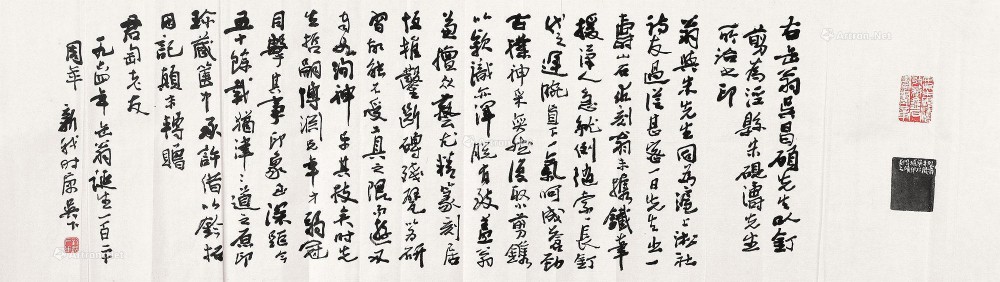 右缶翁吳昌碩先生以釘
剪為涇縣朱硯濤先生
所治之印
翁與朱先生同為滬上淞社
詩友過從甚密一日先生出一
壽山石亟刻翁未攜鐵筆
急就倒隨索一長釘
代之運腕直下一氣呵成蒼勁
古樸神采無 復以剪鐫
以款識亦渾脫有致蓋翁
兼擅众藝尤精篆刻居
恆椎鑿斷磚殘甓以為研
習故能不受工具之限而遊刃
有餘洵神乎其技矣時先
生哲嗣博淵 年才弱冠
目擊其事印象至深距今
五十餘載猶津々道之原印
珍藏篋中承許借以鈐拓
因記顛末轉贈
君匋老友
一九六四年缶翁誕生一百二十
周年 新我時客吳下